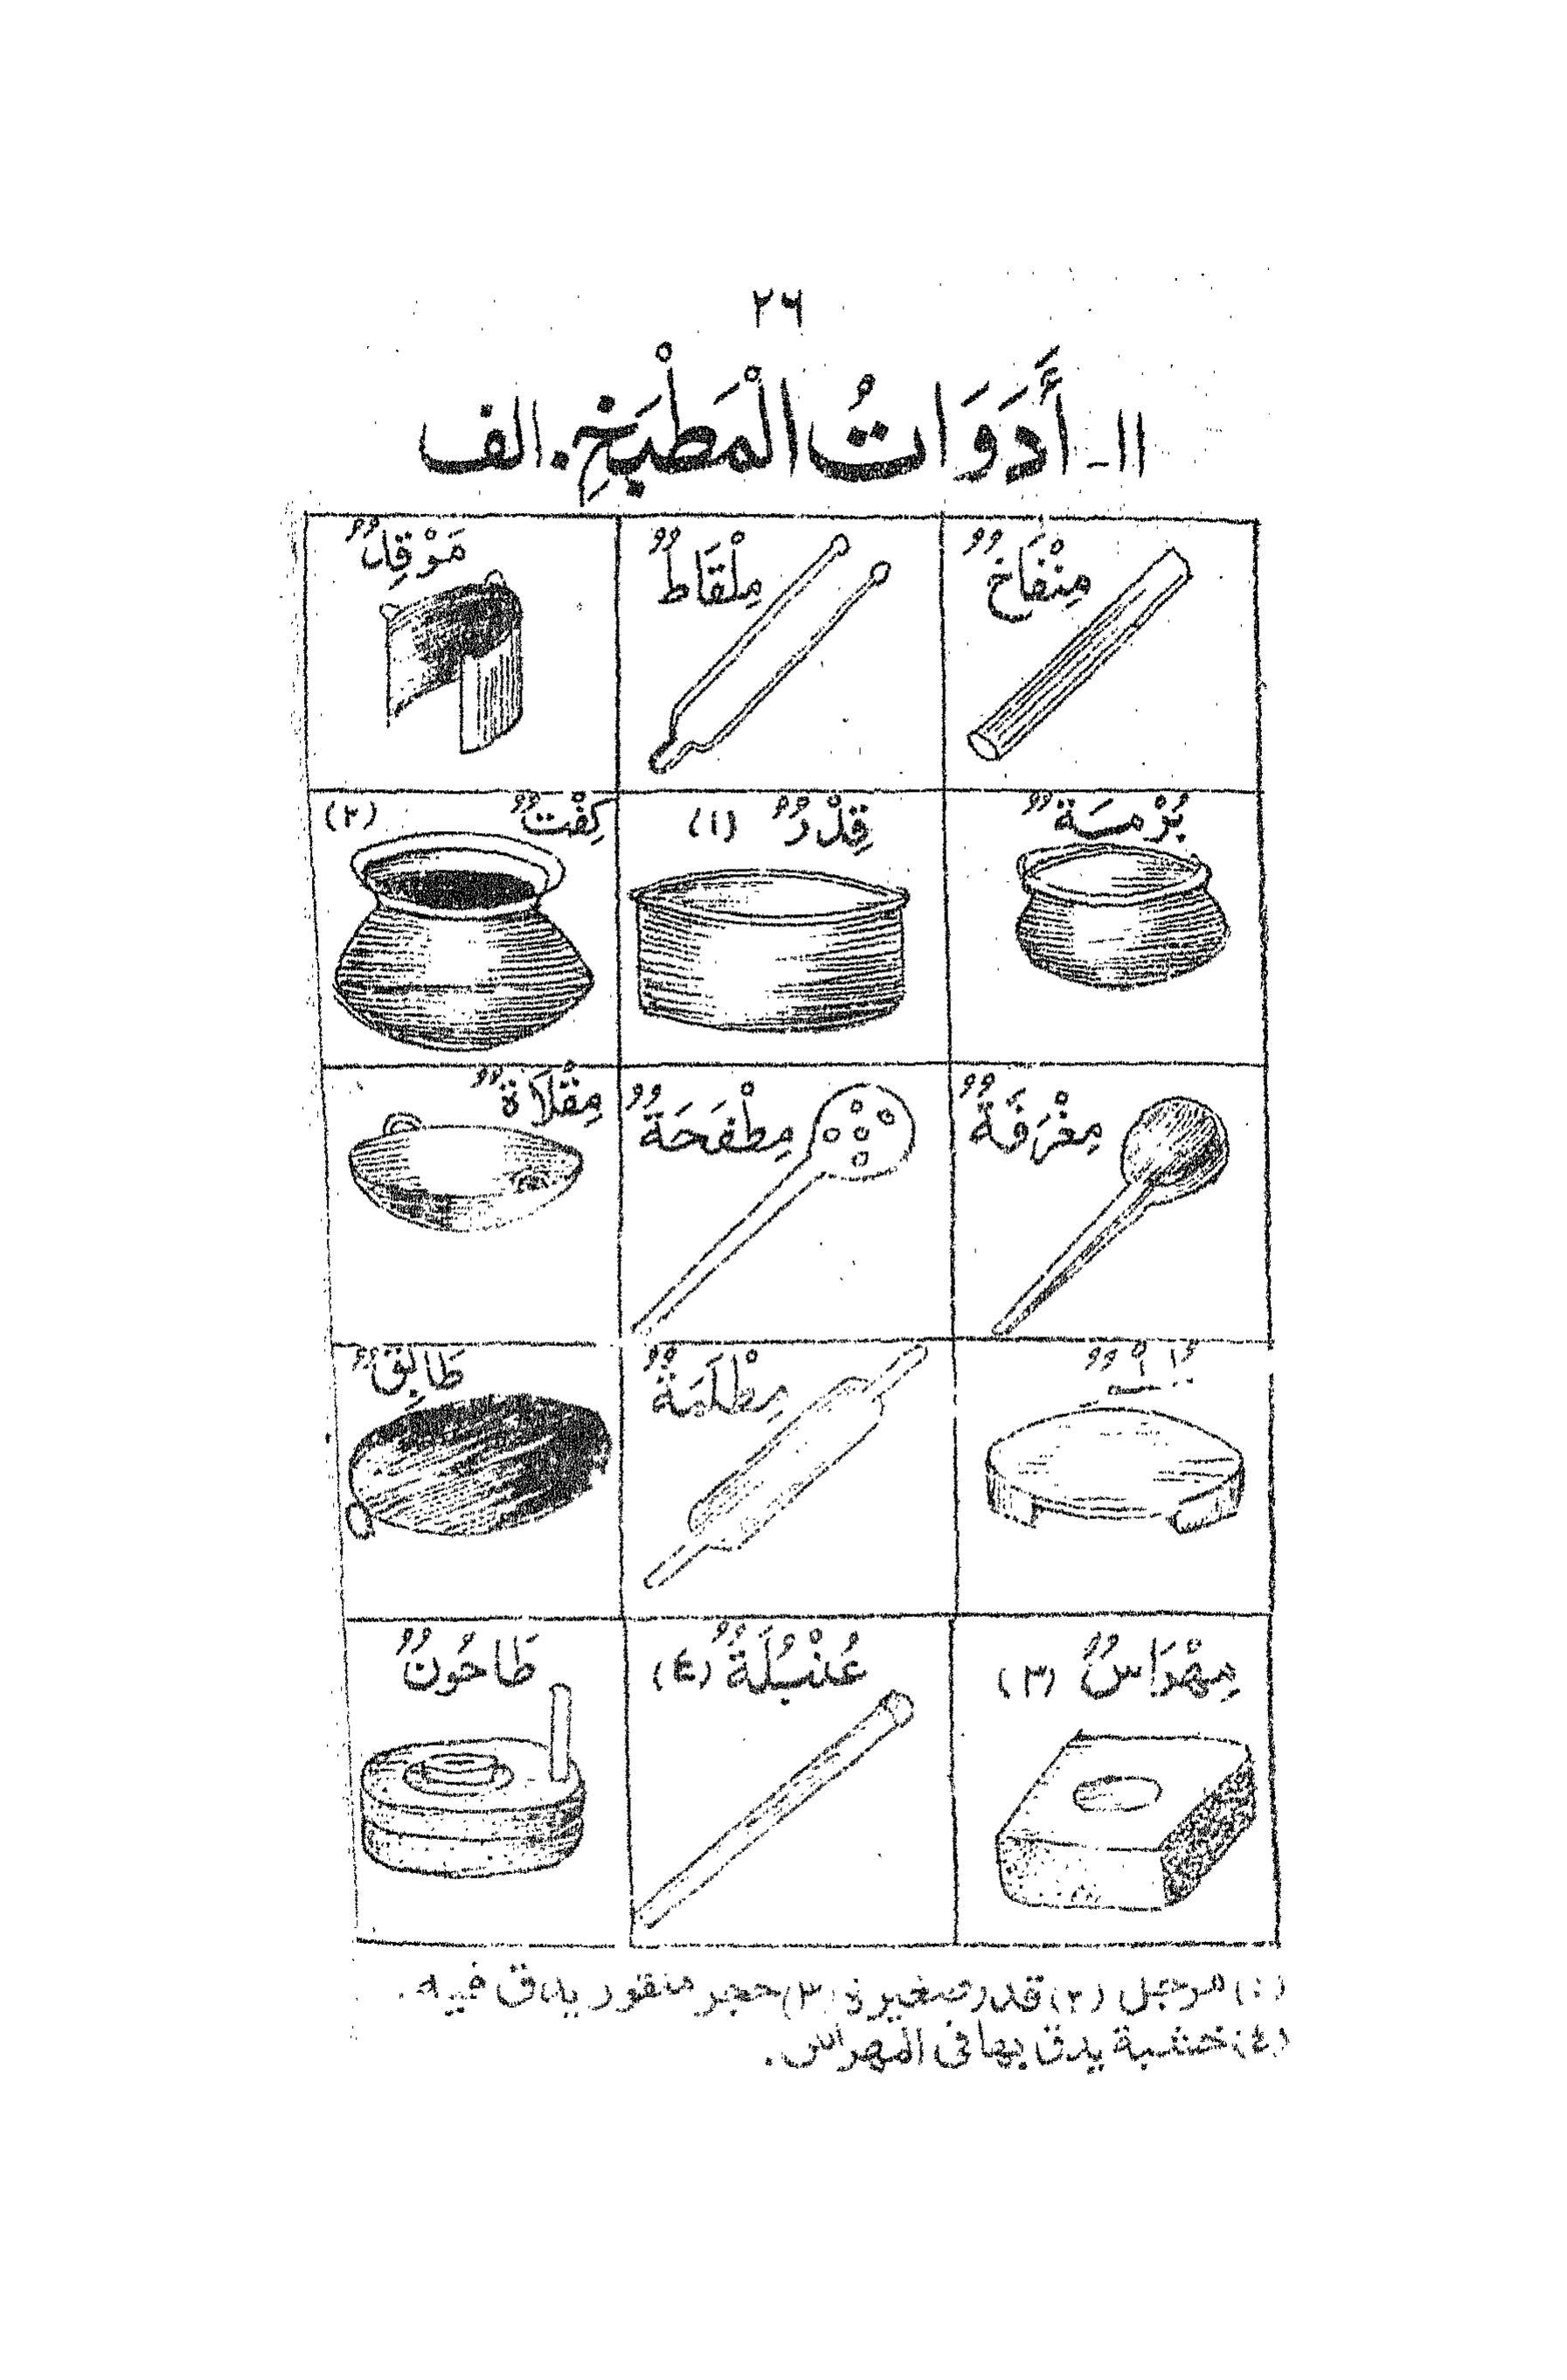 ٢٦
١١ـ أَدَوَاتُ الْمَطْبَخِ. الف
مِنْفَاخٌ مِلْقَاطٌ مَوْقِدٌ
بُرْمَةٌ قِدْرٌ (١) كِفْتٌ (٢)
مِغْرَفَةٌ مِطْفَحَةٌ مِقْلَاةٌ
مِطْلَمَةٌ طَابَِقٌ
مِهْرَاسٌ (٣) عُنْبُلَةٌ (٤) طَاحُونٌ
(١) مرجل (٢) قدر صغيرة (٣) حجر منقور يدق فيه.
(٤) خشبة يدق بها فى المهراس.